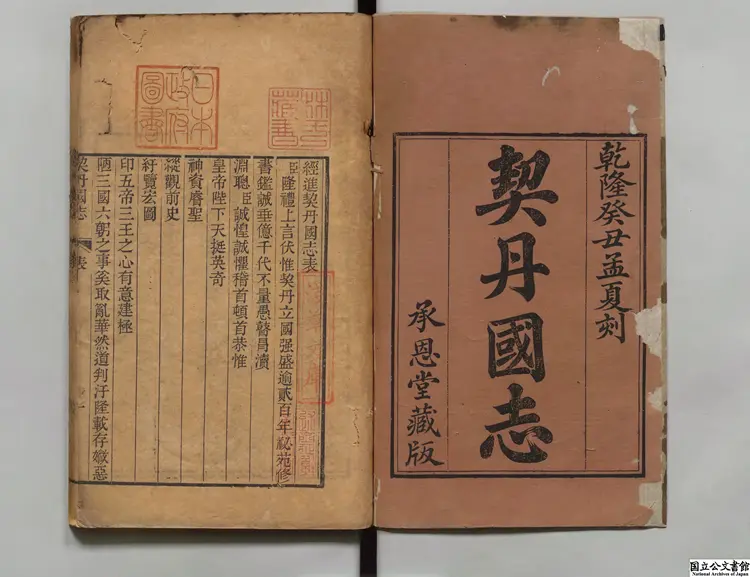 乾隆癸丑孟夏刻
契丹國志
承恩堂藏版
經進契丹國志表
臣隆禮上言伏惟契丹立國强盛逾貳百年秘苑修
書鑑誡垂億千代不量愚瞽冒瀆
淵聰臣誠惶誠懼稽首頓首恭惟
皇帝陛下天挺英奇
神資睿聖
縱觀前史
紆覽宏圖
印五帝三王之心有意建極
陋三國六朝之事奚取亂華然道判汙隆載存媺惡
契丹國志
表
一
日本
政府
圖書
國立公文書館
National Archives of Japan